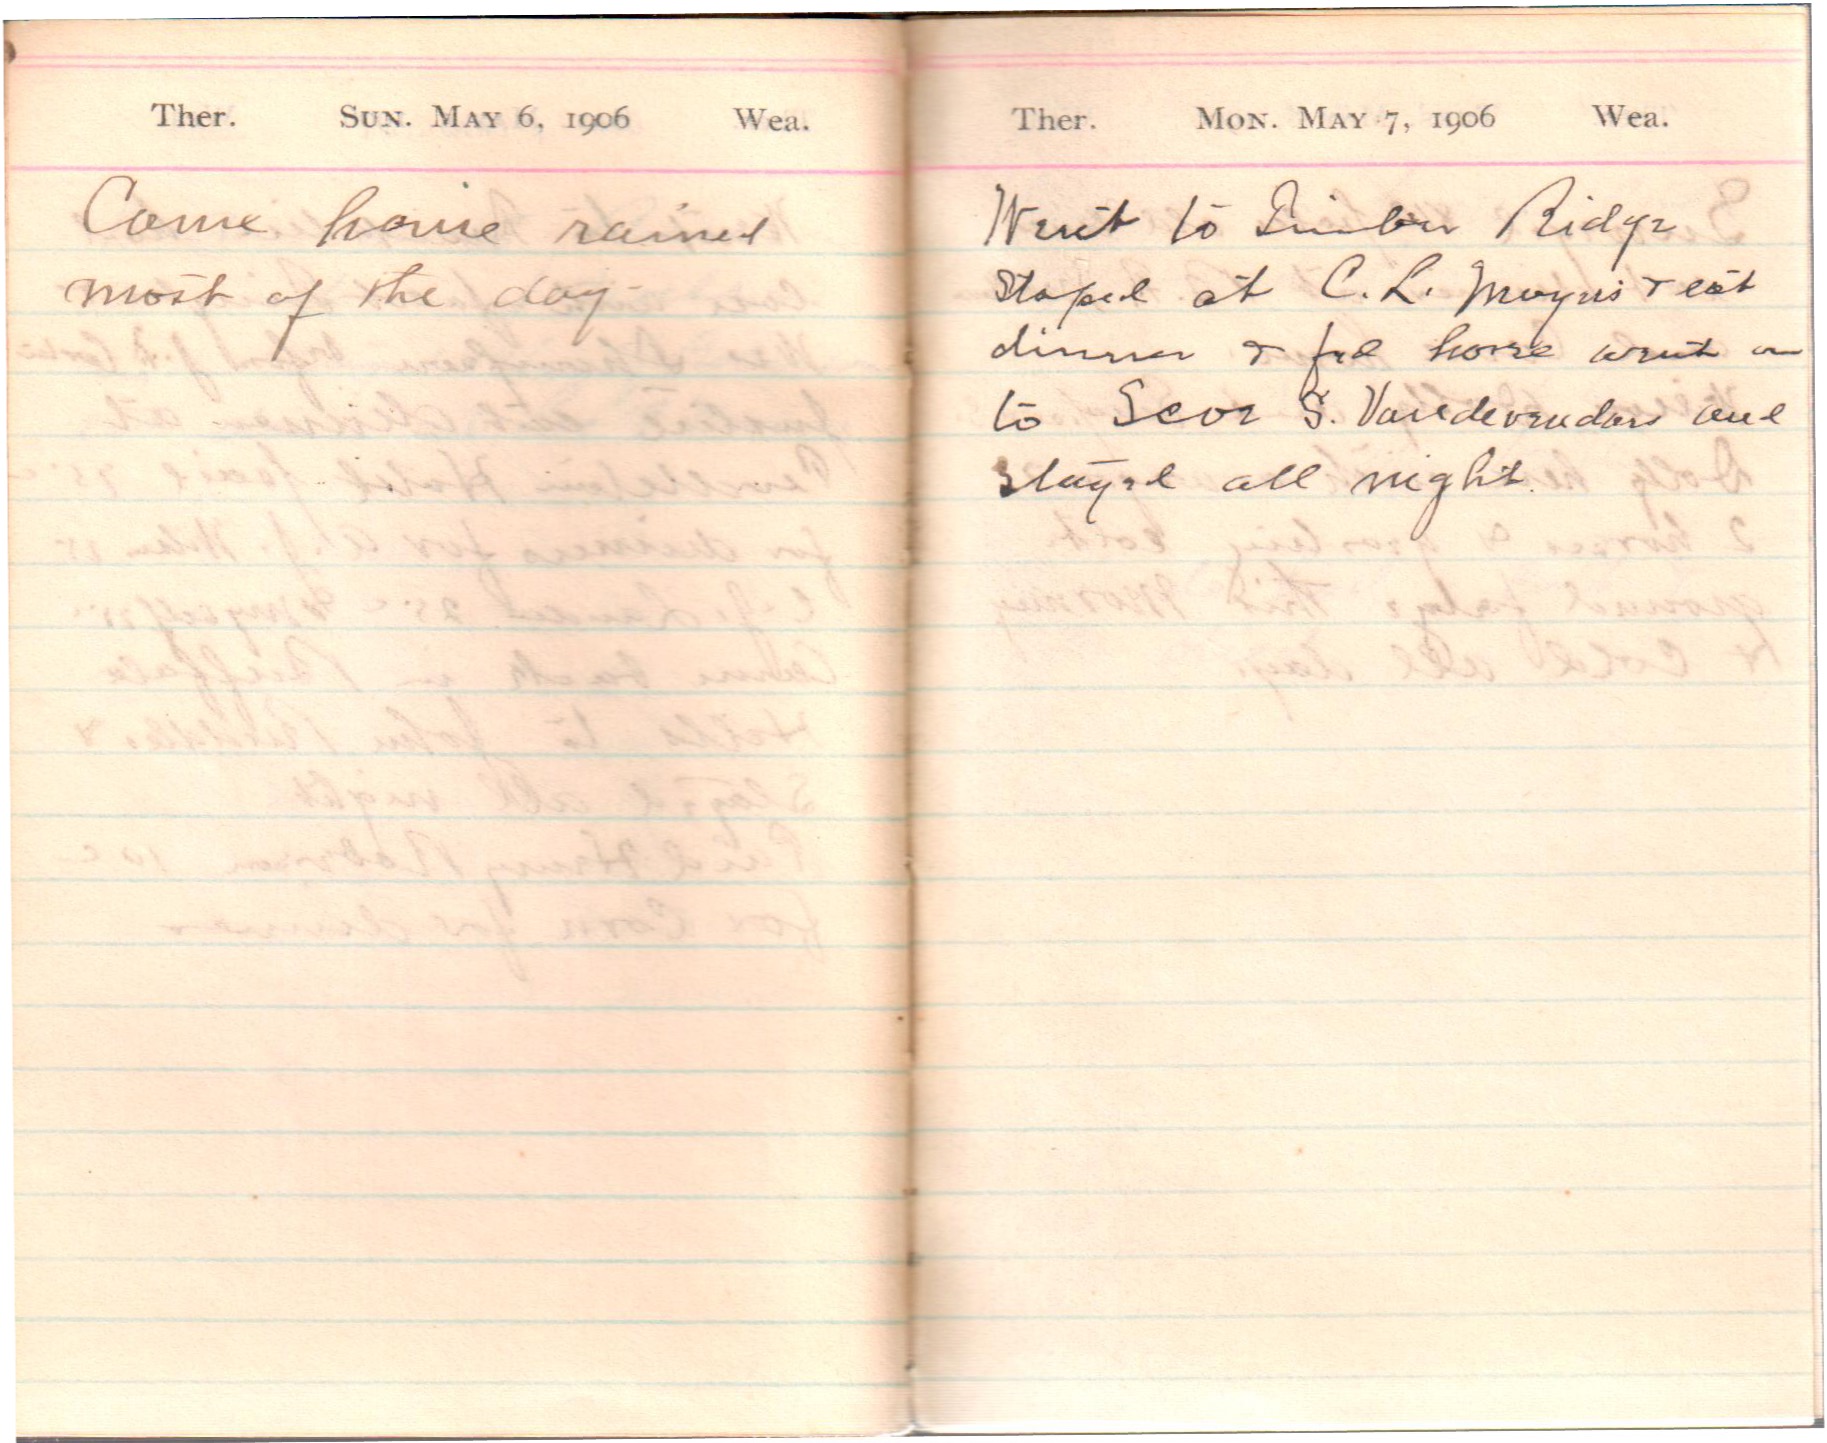 Ther. SUN. MAY 6, 1906 Wea.
Come home rained
most of the day
Ther. MON. MAY 7, 1906 Wea.
Went to Timber Ridge
Stoped at C. L. & eat
dinner & fed horse went on
to S. Vandevendars and
stayed all night.